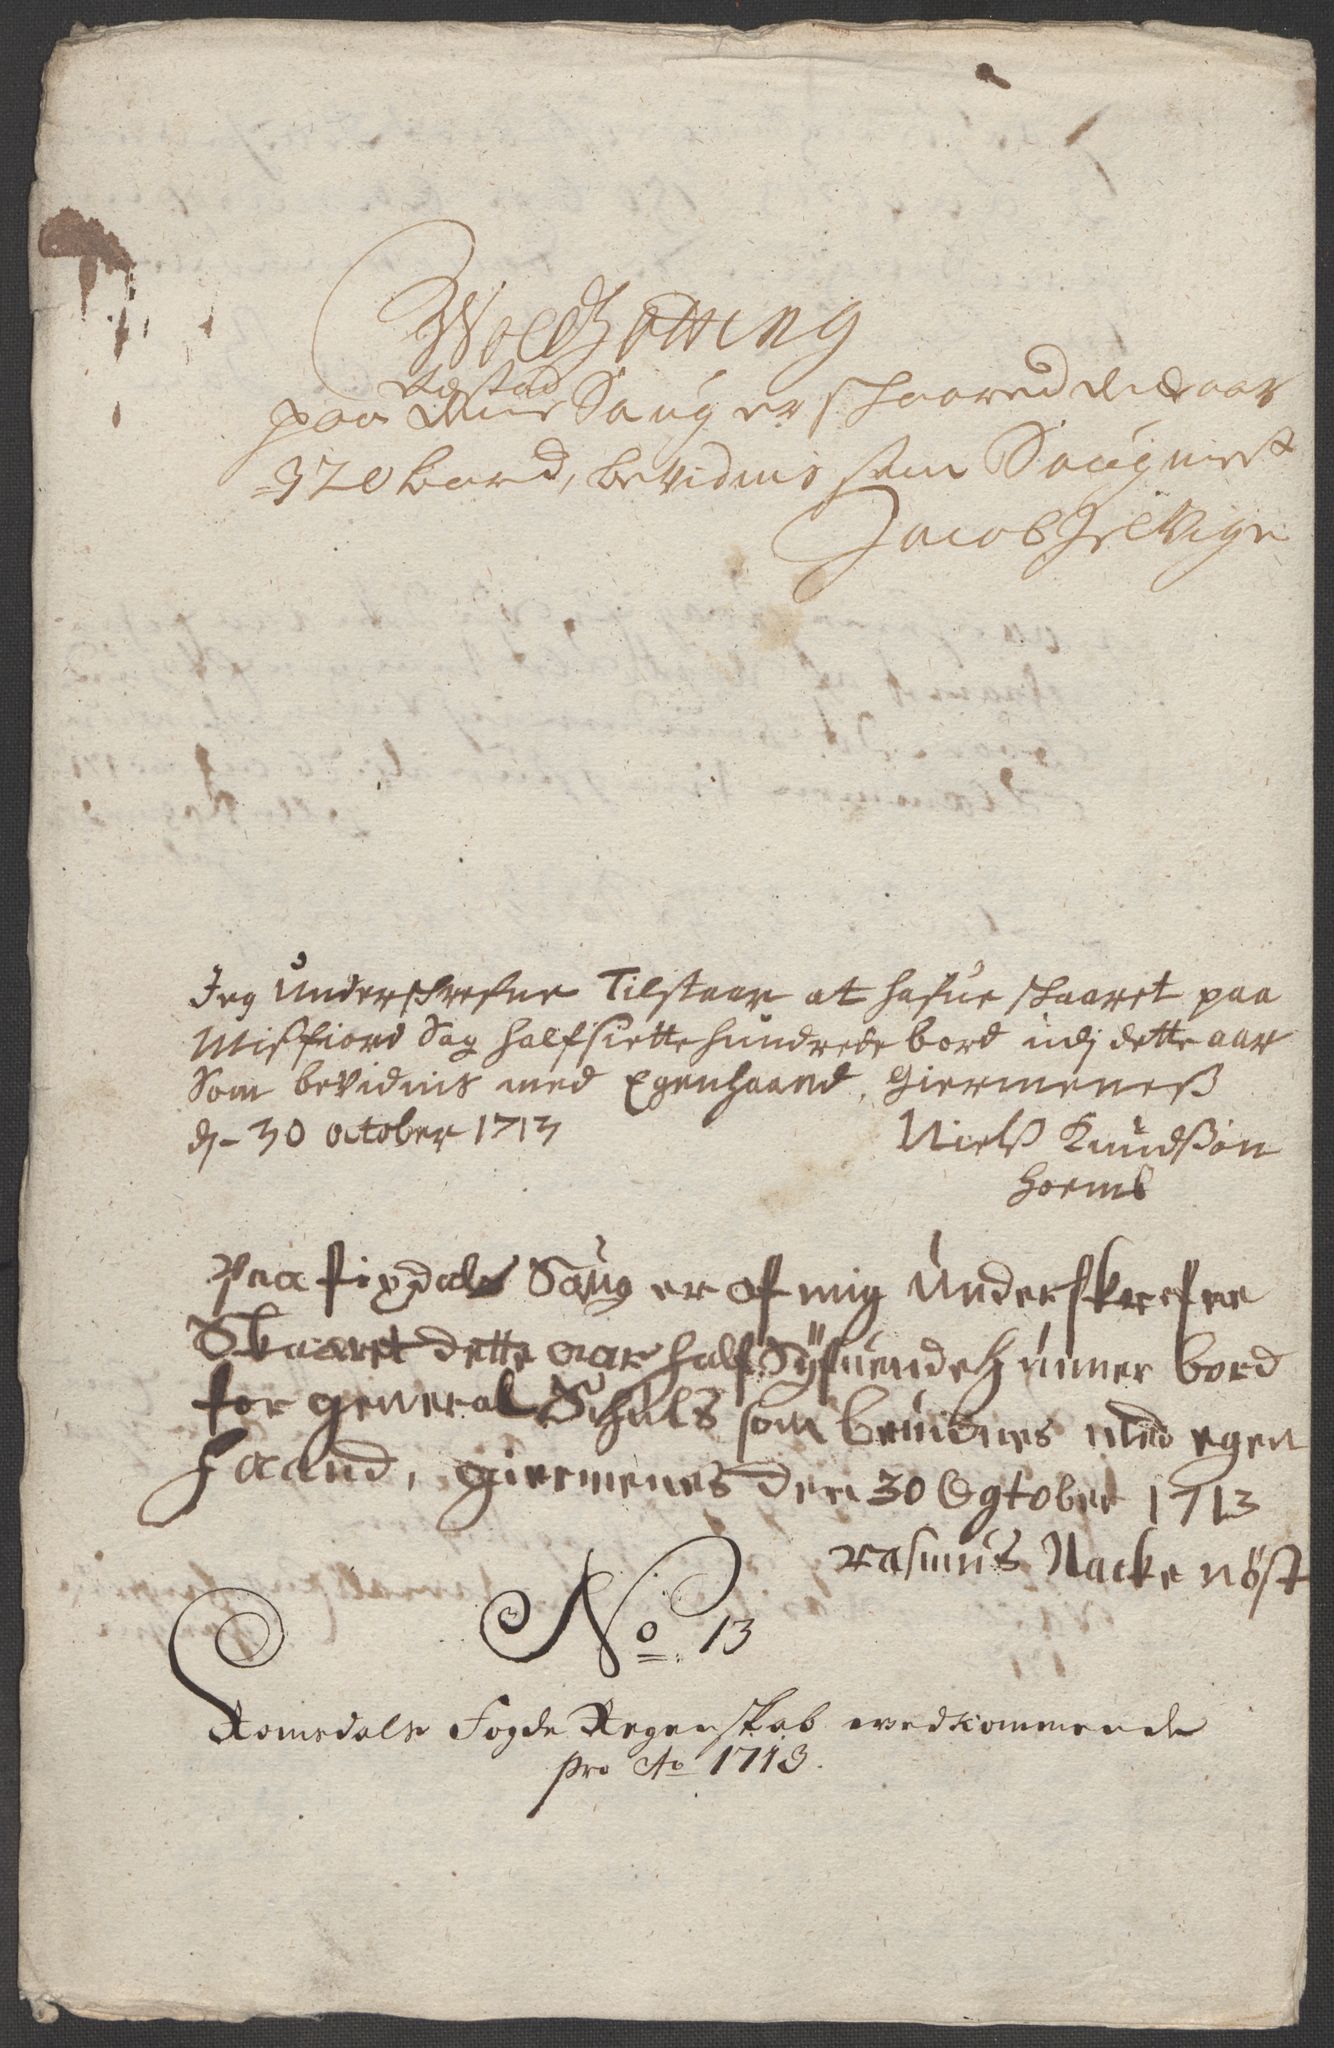 paa Saug er skaared dette aar
370 bord, bevidnis som Saugmest
Jacob
Jeg Underschrefne Tilstaar at hafue skaaret paa
Misfiord Sag halfsiette hundrede bord udj dette aar
Som bevidnis med Egenhaand, Giermeneß
dj - 30 october 1713
Nielß Knudßøn
hoemb
Paa fixdals Saug er af mig Underskrefne
Skaaret dette aar half Syfuende Hunner bord
for general Schults som beuidnes med egen
Haand, giermenes den 30 Ogtober 1713
rasmus Nacke nöst
No. 13
Romsdals Fogde Regenskab wedkommende
pro Ao 1713.